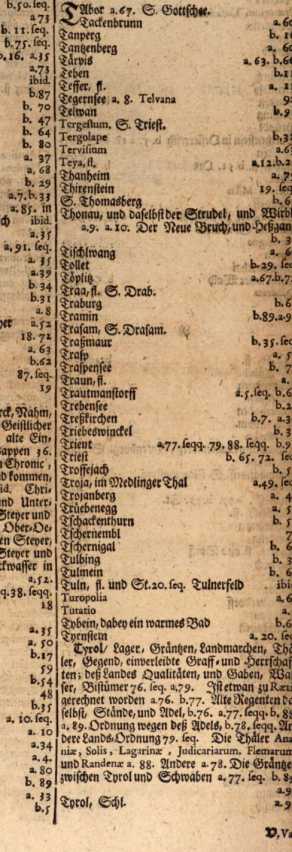 b.50.seq.
a 73
b. 11. seq.
b.75. seq.
b.16. a.35
a.73
ibid.
b.87
b. 70
b. 47
b. 64
b. 80
a. 37
a. 68
b. 29
a.7.b.33
a.85. in
ibid.
a.35
a, 91. seq.
a.35
a.39
b 34
b.31
a.8
a.52
18. 72
a. 63
b.62
87. seq.
19
Geistlicher
alte Ein-
wappen 36.
Chronic,
kommen,
Chri-
und Unter-
Steyer und
Ober-Oe-
en Steyer,
Steyer und
wasser in
a.52.
q.38. seqq.
18
a.35
a. 50
b.17
59
b.54
48
b.35
a. 10. seq.
a. 10
a.34
a. 4.
a. 80
b. 89
a. 33
b.5
TAbor a.67. S. Gottschee.
Tackenbrunn
Tanperg
Tantzenberg
Tarvis a. 63. b.
Teben
Teffer, fl.
Tegernsee a. 8. Telvana
Telwan
Tergestum, S. Triest.
Tergolape
Tervisium
Teya, fl. a.12.b.
Thanheim
Thirenstein 19. seq
S. Thomasberg
Thonau, und daselbst der Strudel, und Wirb
a.9. a.10. Der Neue Bruch, und
Tischlwang
Tollet b.29.
Töplitz a.67.b.
Traa, fl. S. Drab.
Traburg
Tramin b.89.a.
Trasam, S. Drasam.
Trasmaur b.35. sec
Trasp
Traspensee
Traun, fl.
Trautmanstorff a.5. seq. b.
Trebensee
Treßkirchen b.7. a.
Triebeswinckel
Trient a.77. seqq. 79. 88. seqq. b.
Triest b. 65. 72. se
Troffejach
Troja, im Medlinger Thal a.49. se
Trojanberg
Trüebenegg
Tschackenthurn
Tschernembl
Tschernigal
Tulbing
Tulmein
Tuln, fl. und St. 20. seq. Tulnerfeld
Turopolia
Tutatio
Tybein, dabey ein warmes Bad
Tyrnstein a. 20.
Tyrol / Lager, Gräntzen, Landmarchen, Thä
ler, Gegend, einverleibte Graff- und Herrschaf
ten; deß Landes Qualitäten, und Gaben, Wa
ser, Bistümer 76. seq. a.79. Ist etwan zu
gerechnet worden a.76. b.77. Alte Regenten da
selbst, Stände, und Adel, b.76. a.77. seqq. b.
a. 89. Ordnung wegen deß Adels, b.78. seqq.
dere Lands-Ordnung 79. seq. Die Thäler Ana
niæ, Solis, Lagarinæ, Judicariarum, Flemarum
und Randenæ a. 88. Andere a.78. Die Gräntze
zwischen Tyrol und Schwaben a, 77. seq. b.
Tyrol, Schl.